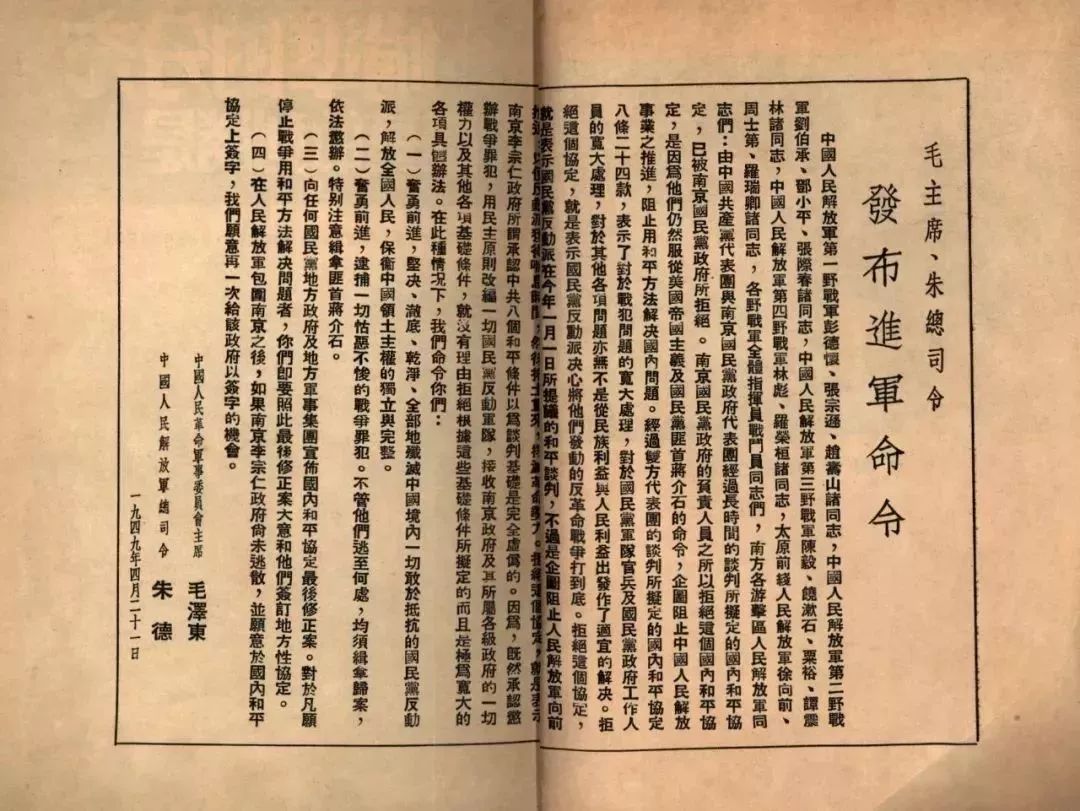 毛主席、朱總司令
發布進軍命令
中國人民解放軍第一野戰軍彭德懷、張宗遜、趙壽山諸同志，中國人民解放軍第二野戰
軍劉伯承、鄧小平、張際春諸同志，中國人民解放軍第三野戰軍陳毅、饒漱石、粟裕、譚震
林諸同志，中國人民解放軍第四野戰軍林彪、羅榮桓諸同志，太原前綫人民解放軍徐向前、
周士第、羅瑞卿諸同志，各野戰軍全體指揮員戰鬥員同志們，南方各游擊區人民解放軍同
志們：由中國共產黨代表團與南京國民黨政府代表團經過長時間的談判所擬定的國內和平協
定，已被南京國民黨政府所拒絕。南京國民黨政府的負責人員之所以拒絕這個國內和平協
定，是因為他們仍然服從美國帝國主義及國民黨匪首蔣介石的命令，企圖阻止中國人民解放
事業之推進，阻止用和平方法解決國內問題。經過雙方代表團的談判所擬定的國內和平協定
八條二十四款，表示了對於戰犯問題的寬大處理，對於國民黨軍隊官兵及國民黨政府工作人
員的寬大處理，對於其他各項問題亦無不是從民族利益與人民利益出發作了適宜的解決。拒
絕這個協定，就是表示國民黨反動派決心將他們發動的反革命戰爭打到底。拒絕這個協定，
就是表示國民黨反動派在今年一月一日所提議的和平談判，不過是企圖阻止人民解放軍向前
拒絕這個協定，就是表示
南京李宗仁政府所謂承認中共八個和平條件以為談判基礎是完全虛僞的。因爲，旣然承認懲
辦戰爭罪犯，用民主原則改編一切國民黨反動軍隊，接收南京政府及其所屬各級政府的一切
權力以及其他各項基礎條件，就沒有理由拒絕根據這些基礎條件所擬定的而且是極爲寬大的
各項具體辦法。在此種情況下，我們命令你們：
（一）奮勇前進，堅决、澈底、乾淨、全部地殲滅中國境內一切敢於抵抗的國民黨反動
派，解放全國人民，保衞中國領土主權的獨立與完整。
（二）奮勇前進，逮捕一切怙惡不悛的戰爭罪犯。不管他們逃至何處，均須緝拿歸案，
依法懲辦。特别注意緝拿匪首蔣介石。
（三）向任何國民黨地方政府及地方軍事集團宣佈國內和平協定最後修正案。對於凡願
停止戰爭用和平方法解决問題者，你們卽要照此最後修正案大意和他們簽訂地方性協定。
（四）在人民解放軍包圍南京之後，如果南京李宗仁政府尙未逃散，並願意於國內和平
協定上簽字，我們願意再一次給該政府以簽字的機會。
中國人民革命軍事委員會主席 毛澤東
中國人民解放軍總司令 朱德
一九四九年四月二十一日